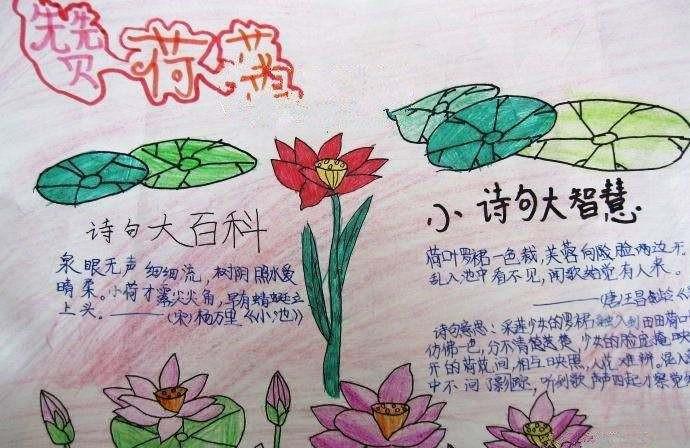 赞荷
诗句大百科
泉眼无声细细流，树阴照水爱
晴柔。小荷才露尖尖角，早有蜻蜓立
上头。——(宋)杨万里《小池》
小诗句大智慧
荷叶罗裙一色裁，芙蓉向脸两边开
乱入池中看不见，闻歌始觉有人来。
——(唐)王昌龄
诗句意思：采莲少女的罗裙融入到田田荷
仿佛一色，分不清楚 少女的脸庞掩映
开的荷花间，相互映照，人花难辨。混入
中不间了踪影，听到歌声四起才察觉